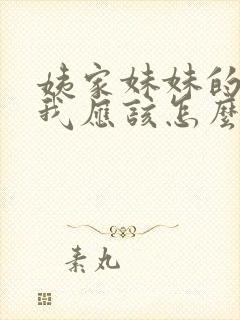 姨家妹妹的
我應該怎麼
素丸